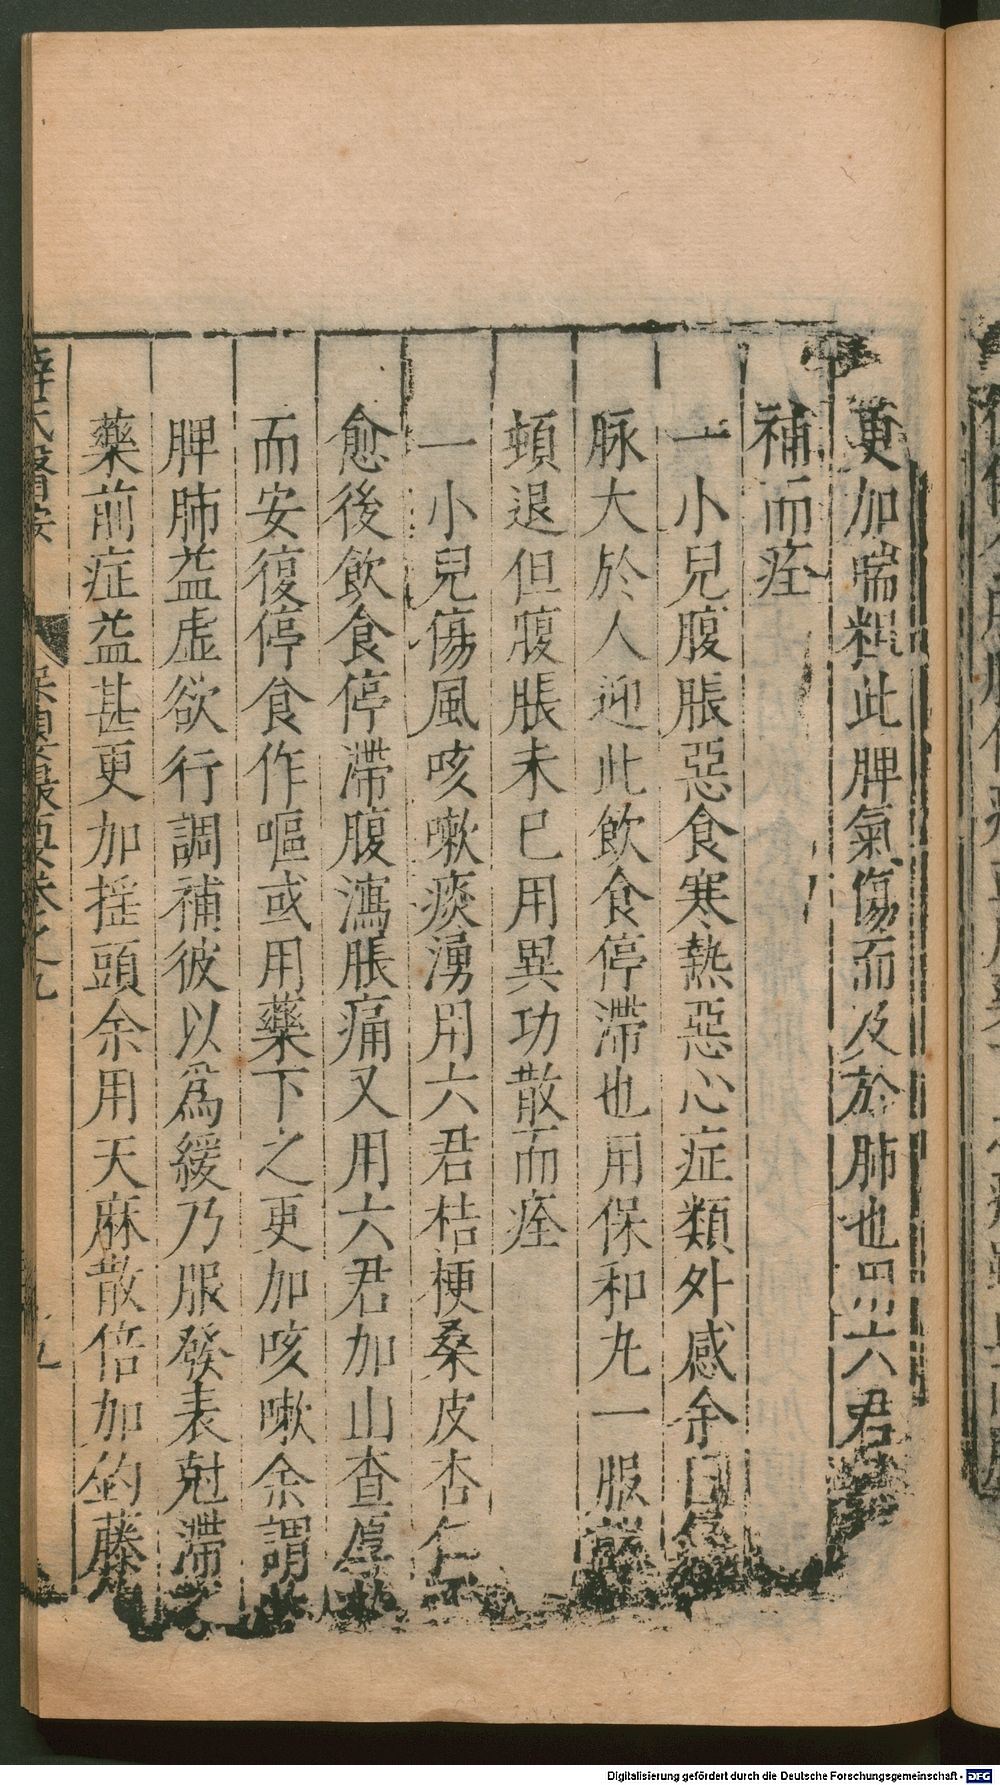 更加喘粗此脾氣傷而及於肺也用六君
補而痊
一小兒腹脹惡食寒熱惡心症類外感余曰
脉大於人迎此飲食停滯也用保和丸一服
頓退但腹脹未已用異功散而痊
一小兒傷風咳嗽痰湧用六君桔梗桑皮杏仁
愈後飲食停滯腹瀉脹痛又用六君加山查厚
而安復停食作嘔或用藥下之更加咳嗽余謂
脾肺益虛欲行調補彼以爲緩乃服發表尅滯之
藥前症益甚更加揺頭余用天麻散倍加釣藤
薛氏醫按
保嬰撮要卷之九
九
Digitalisierung gefördert durch die Deutsche Forschungsgemeinschaft - DFG